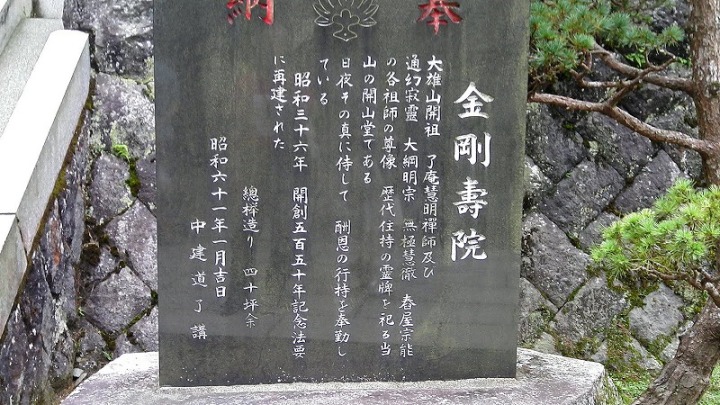 奉納
金剛壽院
大雄山開祖 了庵慧明禅師及び
通幻寂靈 大綱明宗 無極慧徹 春屋宗能
の各祖師の尊像 歴代住持の霊牌を祀る当
山の開山堂である
日夜その真に侍して 酬恩の行持を奉勤し
ている
昭和三十六年 開創五百五十年記念法要
に再建された
總欅造り 四十坪余
昭和六十一年一月吉日
中建道了講